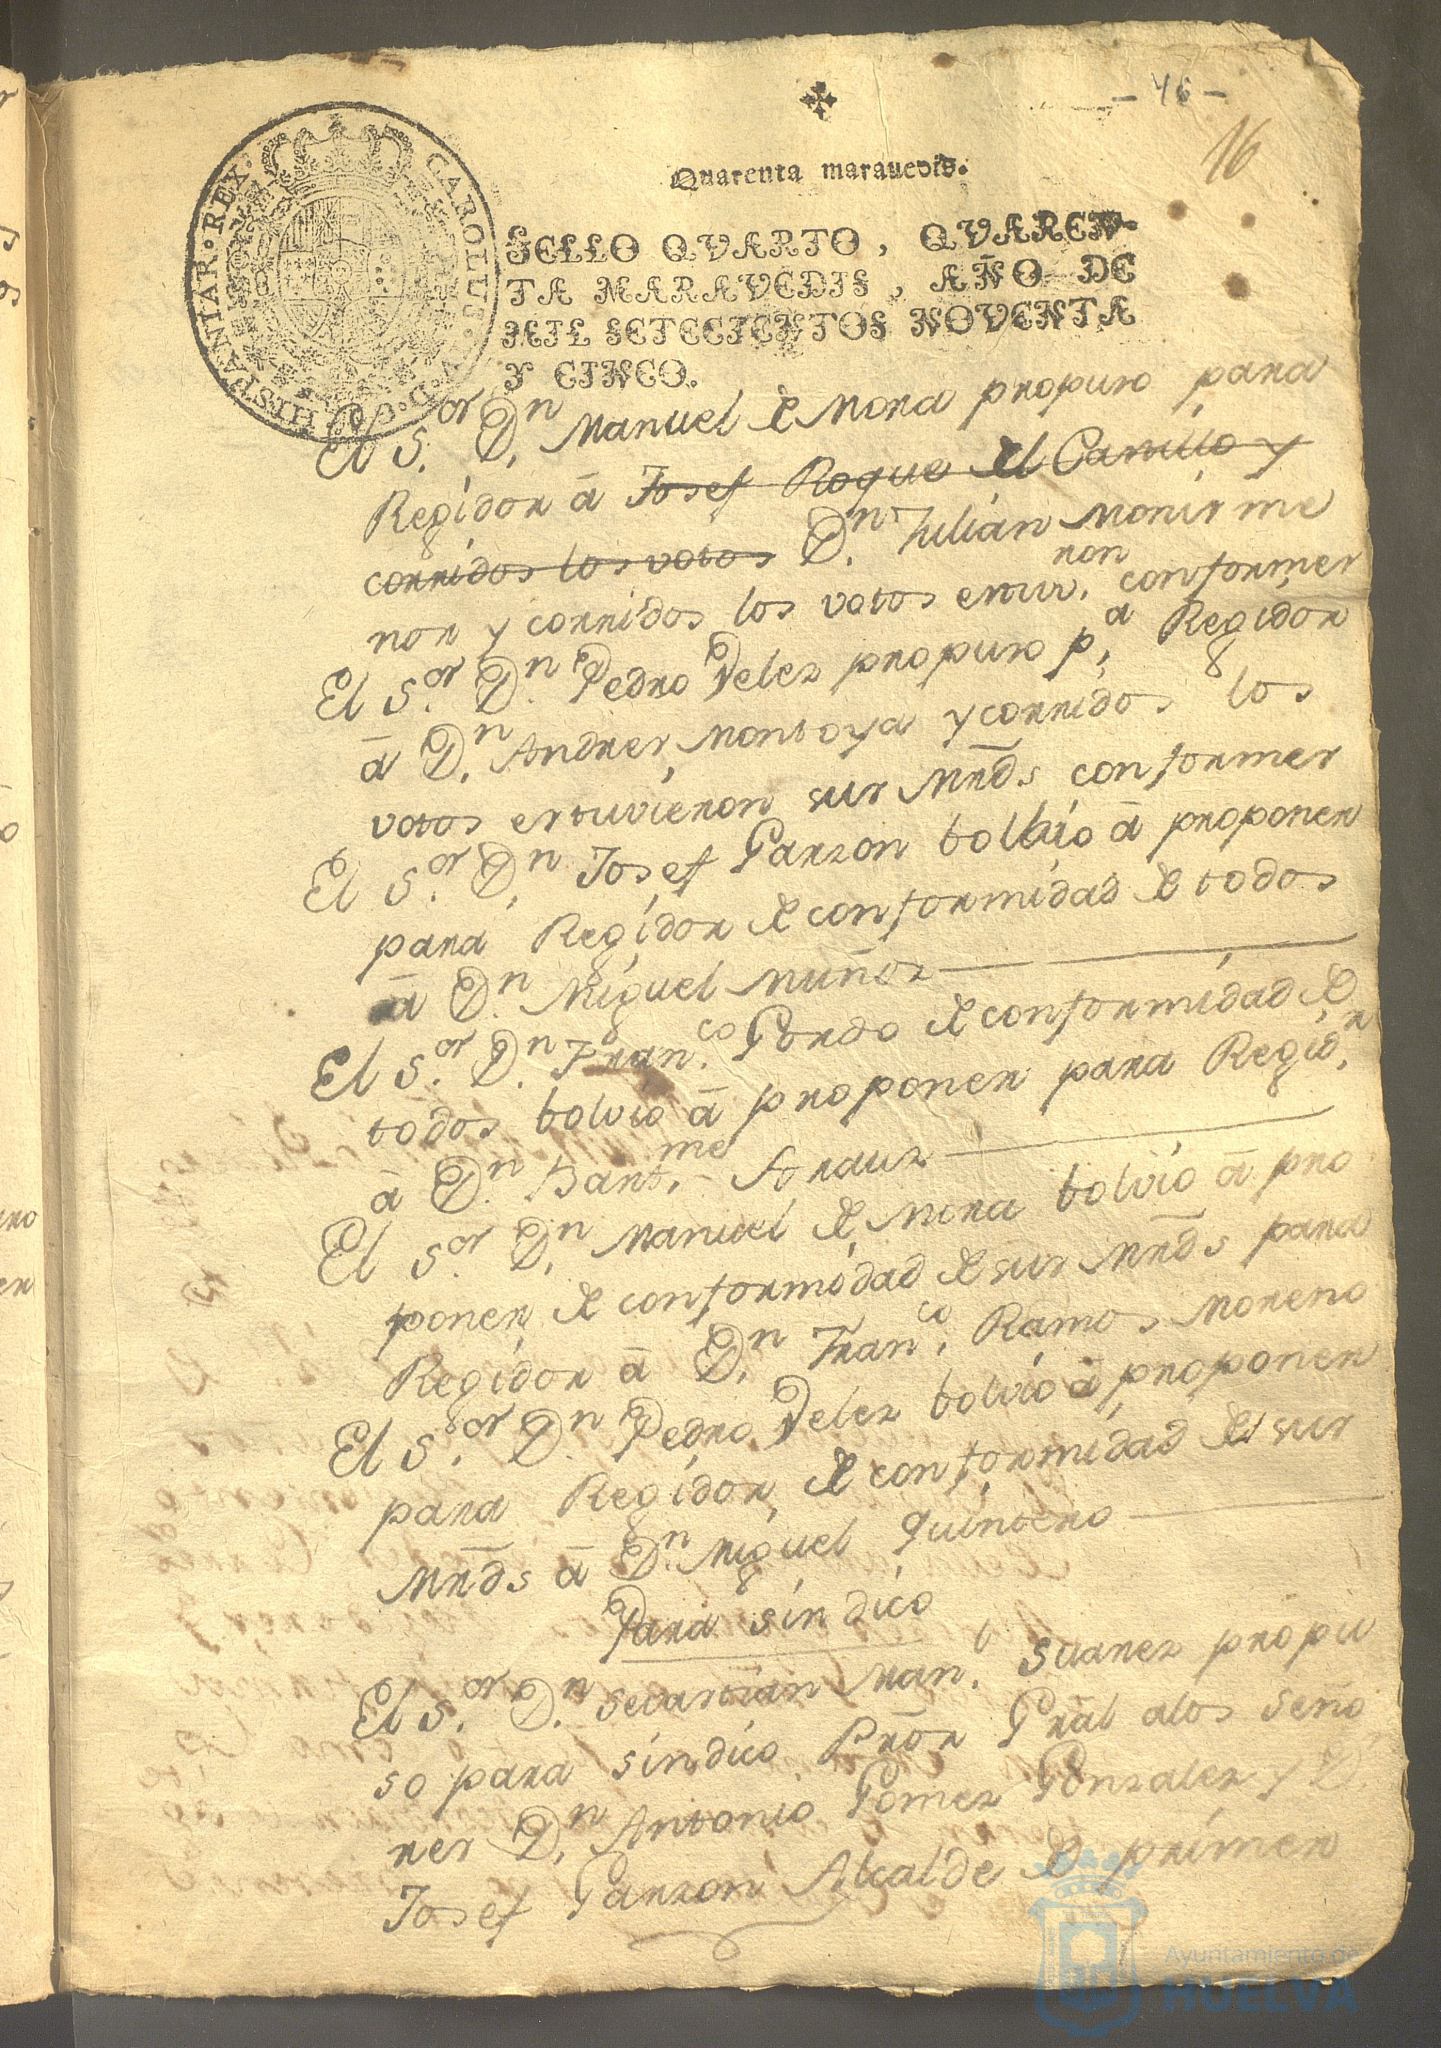 - 46 -
16
Quarenta maravedis.
SELLO QVARTO, QVAREN-
TA MARAVEDIS, AÑO DE
MIL SETECIENTOS NOVENTA
Y CINCO.
CAROLUS · IV · D · G · HISPANIAR · REX ·
El S.or D.n Manuel de Mora propuso para
Regidor â Josef Roque del Castillo y
corridos los votos D.n Julian Monis me
nor y corridos los votos estuv.ron conformes
El S.or D.n Pedro Velez propuso p.a Regidor
â D.n Andres Montoya y corridos los
votos estuvieron sus Mrds conformes
El S.or D.n Josef Garzon bolbio â proponer
para Regidor de conformidad de todos
â D.n Miguel Muñoz
El S.or D.n Fran.co Gordo de conformidad de
todos bolvio â proponer para Regid.r
â D.n Bart.me Arauz
El S.or D.n Manuel de Mora bolvio â pro
poner de conformidad de sus Mrds para
Regidor â D.n Fran.co Ramos Moreno
El S.or D.n Pedro Velez bolvio â proponer
para Regidor de conformidad de sus
Mrds â D.n Miguel Quintero
Para sindico
El S.or D.n Sevastian Man.l Suarez propu
so para sindico Prôr Grâl alos seño
res D.n Antonio Gomez Gonzalez y D.
Josef Garzon Alcalde de primer
Ayuntamiento de
HUELVA